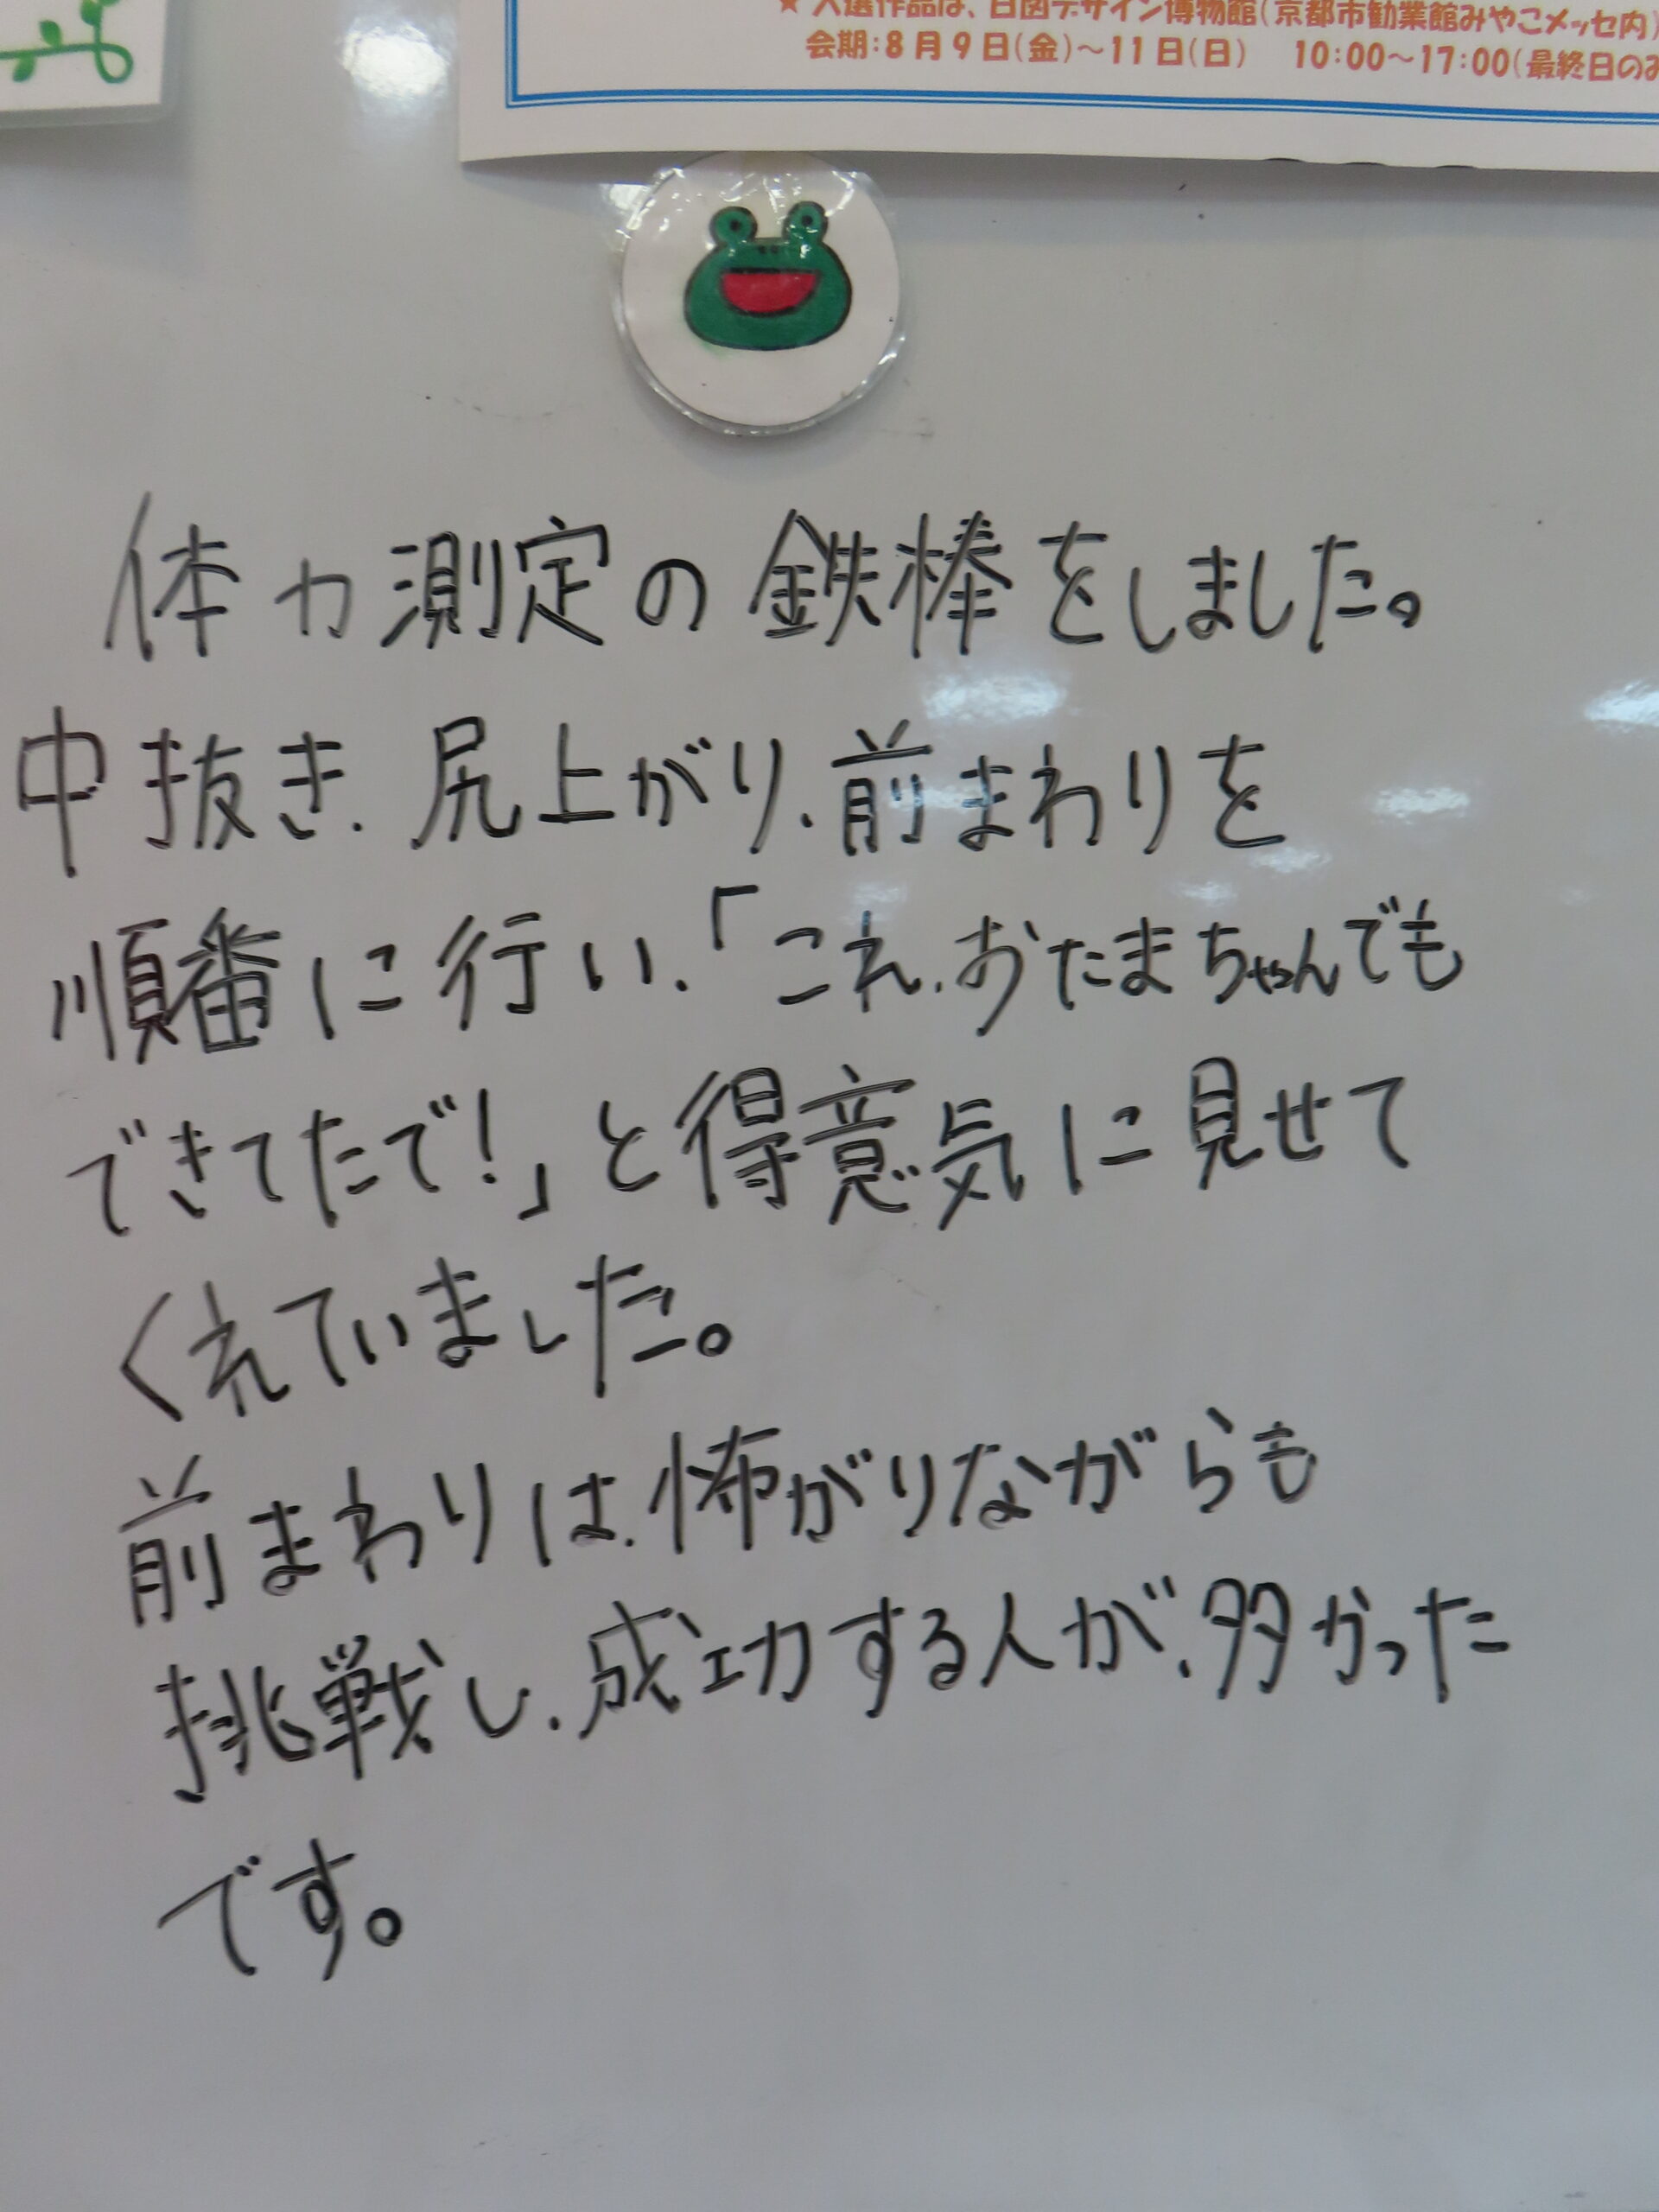 ★ 入選作品は、日図デザイン博物館(京都市勧業館みやこメッセ内)
会期:8月9日(金)~11日(日) 10:00~17:00(最終日のみ
体力測定の鉄棒をしました。
中抜き、尻上がり、前まわりを
順番に行い、「これ、おたまちゃんでも
できてたで!」と得意気に見せて
くれていました。
前まわりは、怖がりながらも
挑戦し、成功する人が、多かった
です。